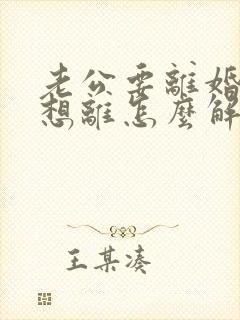 老公要離婚
想離怎麼解
王某湊